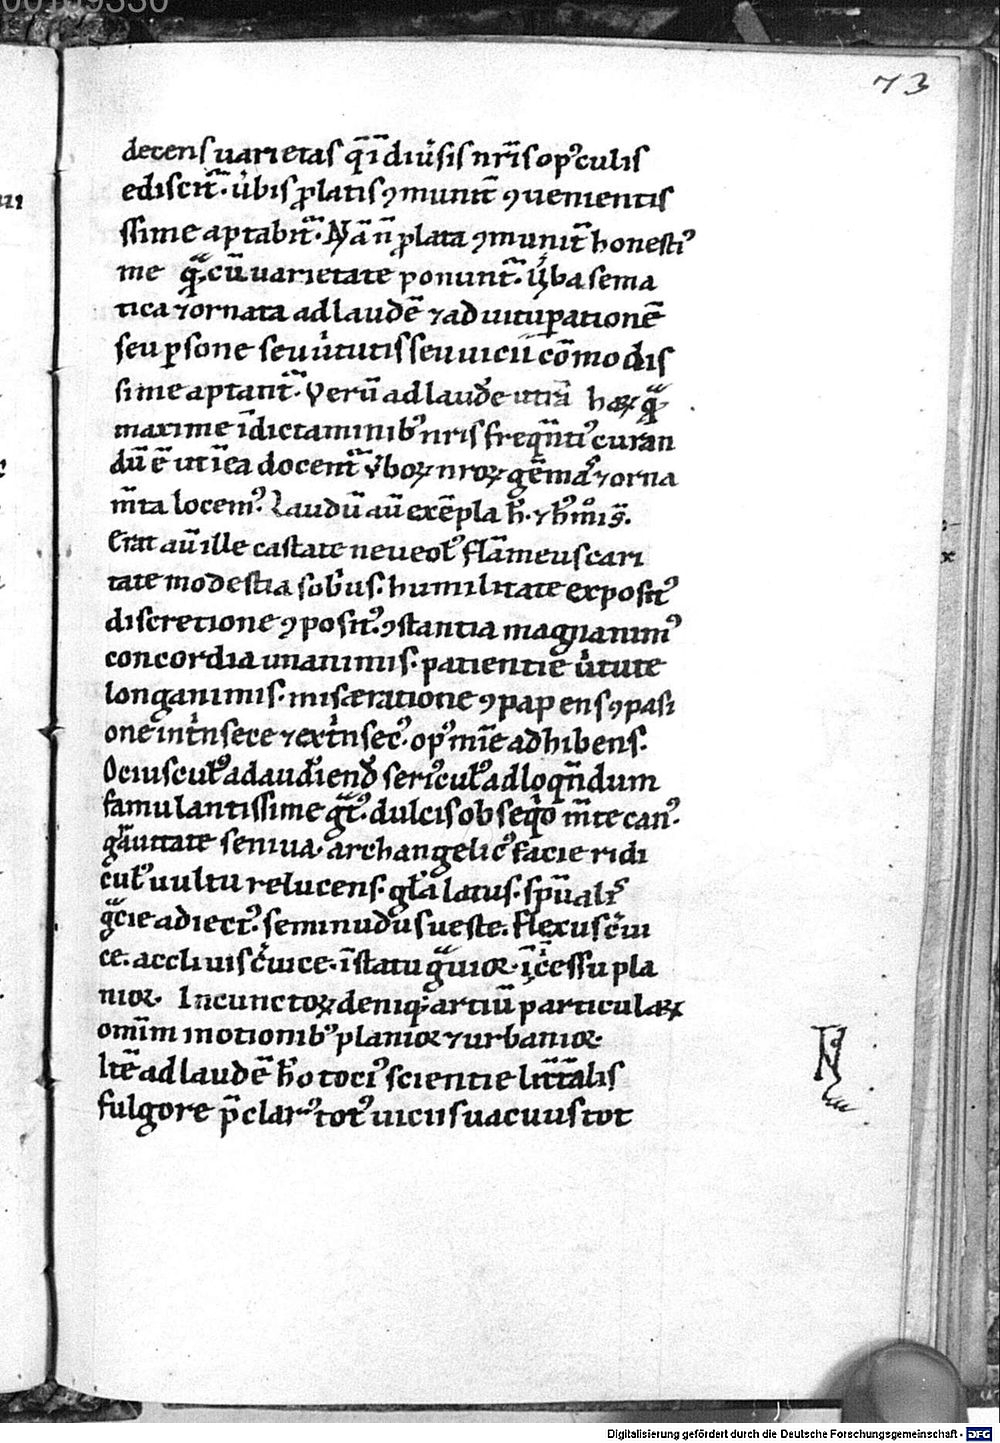 73
decens uarietas q̄ ī diũsis nr̄is opꝰculis
ediscit᷑. ũbis ꝓlatis ꝯmunit᷑ ꝯuenientis
ssime aptabit᷑. Nā n̄ ꝓlata ꝯmunit᷑ honesti
me cū uarietate ponunt᷑. ũba sema
tica ⁊ ornata ad laudē ⁊ ad uituꝑationē
seu ꝑsone seu ũtutis seu uicii cōmodis
sime aptant᷑. Verū ad laudē haꝝ
maxime ī dictaminibꝰ nr̄is freq̄nti curan
dū ē ut īea docent᷑ ũboꝝ nr̄oꝝ gēma ⁊ orna
m̄ta locemꝰ. Laudū aū exēpla
Erat aū ille castate neueolꝰ flāmeus cari
tate modestia sobrius. humilitate expositꝰ
discretione ꝯpositꝰ. ꝯstantia magnanimꝰ
concordia unanimis. patientie ũtute
longanimis. misæratione ꝯpapens ꝯpasi
one int̃nsece ⁊ ext̃nsecꝰ. opꝰ mīe adhibens.
Ociusculꝰ ad audiend̄ seriꝰculꝰ ad loq̄ndum
famulantissime gr̄tꝰ. dulcis obseq̄o m̄te canꝰ.
gᷓuitate seniua. archangelicꝰ facie ridi
culꝰ uultu relucens. gl̄a latus. sp̄ualis
gr̄cie adiectꝰ. seminudus ueste. flexus c̃ui
ce. accliuis c̃uice. ī statu gᷓuior. īcessu pla
nior. In cunctoꝝ deniq; artiū particulaꝝ
omīm motionibꝰ planior ⁊ urbanior.
Itē ad laudē hō tociꝰ scientie litt̄alis
fulgore p̄clarꝰ totꝰ uiciis uacuus tot
N
Digitalisierung gefördert durch die Deutsche Forschungsgemeinschaft - DFG